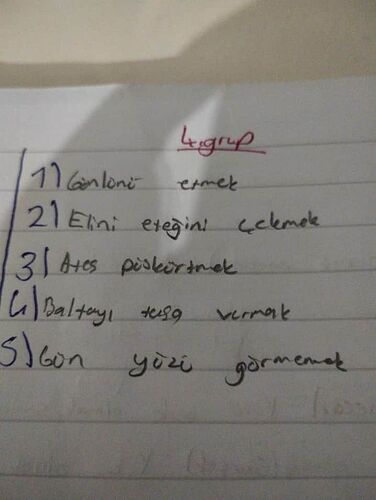 4.grup
1) Gönlünü etmek
2) Elini eteğini çekmek
3) Ateş püskürtmek
4) Baltayı taşa vurmak
5) Gün yüzü görmemek